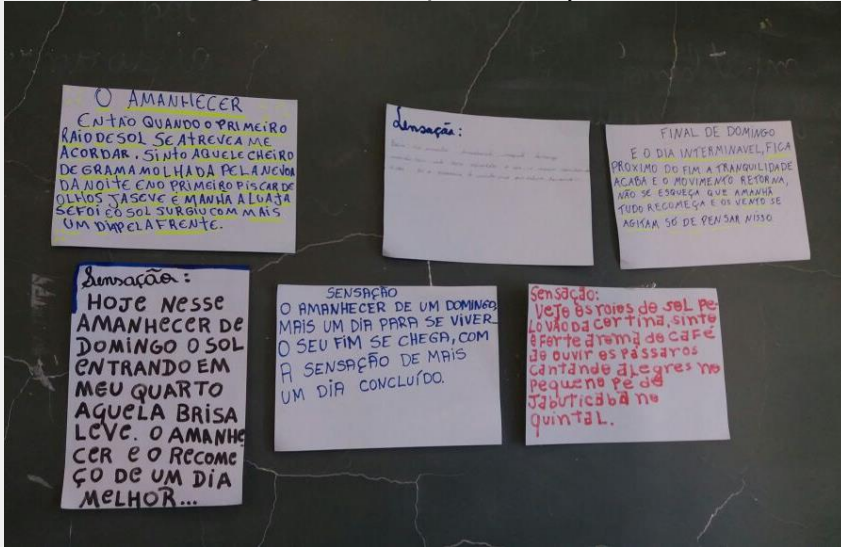 O AMANHECER
ENTÃO QUANDO O PRIMEIRO
RAIO DE SOL SE ATREVE A ME
ACORDAR. SINTO AQUELE CHEIRO
DE GRAMA MOLHADA PELA NEVOA
DA NOITE E NO PRIMEIRO PISCAR DE
OLHOS JA SE VE E MANHÃ A LUA JA
SE FOI E O SOL SURGIU COM MAIS
UM DIA PELA FRENTE.
Sensação:
FINAL DE DOMINGO
E O DIA INTERMINAVEL, FICA
PROXIMO DO FIM A TRANQUILIDADE
ACABA E O MOVIMENTO RETORNA,
NÃO SE ESQUEÇA QUE AMANHÃ
TUDO RECOMEÇA E OS VENTO SE
AGITAM SÓ DE PENSAR NISSO
Sensação:
HOJE NESSE
AMANHECER DE
DOMINGO O SOL
ENTRANDO EM
MEU QUARTO
AQUELA BRISA
LEVE. O AMANHE
CER E O RECOME
ÇO DE UM DIA
MELHOR...
SENSAÇÃO
O AMANHECER DE UM DOMINGO,
MAIS UM DIA PARA SE VIVER
O SEU FIM SE CHEGA, COM
A SENSAÇÃO DE MAIS
UM DIA CONCLUÍDO.
Sensação:
Vejo os raios do sol pe
lo vão da cortina, sinto
o forte aroma do café
ao ouvir os pássaros
cantando alegres no
pequeno pé de
Jabuticaba no
quintal.